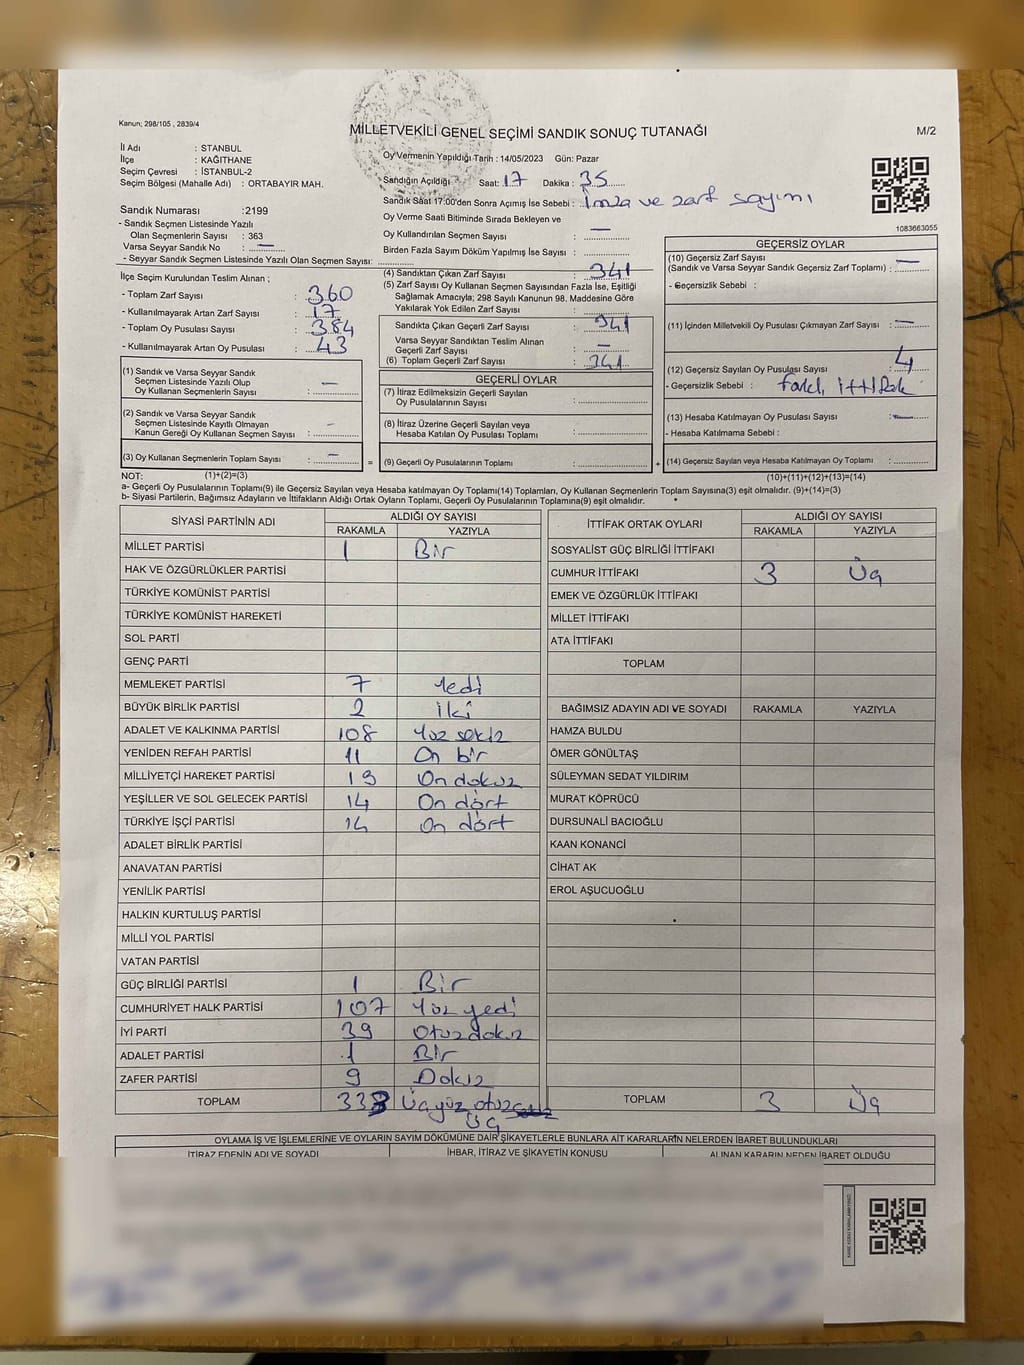 Kanun; 298/105 , 2839/4
MİLLETVEKİLİ GENEL SEÇİMİ SANDIK SONUÇ TUTANAĞI
M/2
İl Adı : STANBUL
İlçe : KAĞITHANE
Seçim Çevresi : İSTANBUL-2
Seçim Bölgesi (Mahalle Adı) : ORTABAYIR MAH.
Oy Vermenin Yapıldığı Tarih : 14/05/2023 Gün: Pazar
Sandığın Açıldığı Saat: 17 Dakika : 35
Sandık Saat 17:00'den Sonra Açımış İse Sebebi : İmza ve zarf sayımı
Oy Verme Saati Bitiminde Sırada Bekleyen ve
Oy Kullandırılan Seçmen Sayısı : —
Birden Fazla Sayım Döküm Yapılmış İse Sayısı :
1083663055
Sandık Numarası :2199
- Sandık Seçmen Listesinde Yazılı
Olan Seçmenlerin Sayısı : 363
Varsa Seyyar Sandık No : —
- Seyyar Sandık Seçmen Listesinde Yazılı Olan Seçmen Sayısı:
İlçe Seçim Kurulundan Teslim Alınan ;
- Toplam Zarf Sayısı : 360
- Kullanılmayarak Artan Zarf Sayısı : 17
- Toplam Oy Pusulası Sayısı : 384
- Kullanılmayarak Artan Oy Pusulası : 43
(1) Sandık ve Varsa Seyyar Sandık
Seçmen Listesinde Yazılı Olup
Oy Kullanan Seçmenlerin Sayısı : —
(2) Sandık ve Varsa Seyyar Sandık
Seçmen Listesinde Kayıtlı Olmayan
Kanun Gereği Oy Kullanan Seçmen Sayısı : -
(3) Oy Kullanan Seçmenlerin Toplam Sayısı : —
(1)+(2)=(3)
(4) Sandıktan Çıkan Zarf Sayısı : 341
(5) Zarf Sayısı Oy Kullanan Seçmen Sayısından Fazla İse, Eşitliği
Sağlamak Amacıyla; 298 Sayılı Kanunun 98. Maddesine Göre
Yakılarak Yok Edilen Zarf Sayısı :
Sandıkta Çıkan Geçerli Zarf Sayısı : 341
Varsa Seyyar Sandıktan Teslim Alınan
Geçerli Zarf Sayısı : —
(6) Toplam Geçerli Zarf Sayısı : 341
GEÇERLİ OYLAR
(7) İtiraz Edilmeksizin Geçerli Sayılan
Oy Pusulalarının Sayısı :
(8) İtiraz Üzerine Geçerli Sayılan veya
Hesaba Katılan Oy Pusulası Toplamı :
= (9) Geçerli Oy Pusulalarının Toplamı :
GEÇERSİZ OYLAR
(10) Geçersiz Zarf Sayısı : —
(Sandık ve Varsa Seyyar Sandık Geçersiz Zarf Toplamı)
- Geçersizlik Sebebi :
(11) İçinden Milletvekili Oy Pusulası Çıkmayan Zarf Sayısı : —
(12) Geçersiz Sayılan Oy Pusulası Sayısı : 4
- Geçersizlik Sebebi : farklı ittifak
(13) Hesaba Katılmayan Oy Pusulası Sayısı : —
- Hesaba Katılmama Sebebi :
+ (14) Geçersiz Sayılan veya Hesaba Katılmayan Oy Toplamı :
(10)+(11)+(12)+(13)=(14)
NOT:
a- Geçerli Oy Pusulalarının Toplamı(9) ile Geçersiz Sayılan veya Hesaba katılmayan Oy Toplamı(14) Toplamları, Oy Kullanan Seçmenlerin Toplam Sayısına(3) eşit olmalıdır. (9)+(14)=(3)
b- Siyasi Partilerin, Bağımsız Adayların ve İttifakların Aldığı Ortak Oyların Toplamı, Geçerli Oy Pusulalarının Toplamına(9) eşit olmalıdır.
SİYASİ PARTİNİN ADI ALDIĞI OY SAYISI
RAKAMLA YAZIYLA
MİLLET PARTİSİ 1 Bir
HAK VE ÖZGÜRLÜKLER PARTİSİ
TÜRKİYE KOMÜNİST PARTİSİ
TÜRKİYE KOMÜNİST HAREKETİ
SOL PARTİ
GENÇ PARTİ
MEMLEKET PARTİSİ 7 Yedi
BÜYÜK BİRLİK PARTİSİ 2 İki
ADALET VE KALKINMA PARTİSİ 108 Yüz sekiz
YENİDEN REFAH PARTİSİ 11 On bir
MİLLİYETÇİ HAREKET PARTİSİ 19 On dokuz
YEŞİLLER VE SOL GELECEK PARTİSİ 14 On dört
TÜRKİYE İŞÇİ PARTİSİ 14 On dört
ADALET BİRLİK PARTİSİ
ANAVATAN PARTİSİ
YENİLİK PARTİSİ
HALKIN KURTULUŞ PARTİSİ
MİLLİ YOL PARTİSİ
VATAN PARTİSİ
GÜÇ BİRLİĞİ PARTİSİ 1 Bir
CUMHURİYET HALK PARTİSİ 107 Yüz yedi
İYİ PARTİ 39 Otuz dokuz
ADALET PARTİSİ 1 Bir
ZAFER PARTİSİ 9 Dokuz
TOPLAM 333 Üçyüz otuz
üç
İTTİFAK ORTAK OYLARI ALDIĞI OY SAYISI
RAKAMLA YAZIYLA
SOSYALİST GÜÇ BİRLİĞİ İTTİFAKI
CUMHUR İTTİFAKI 3 Üç
EMEK VE ÖZGÜRLÜK İTTİFAKI
MİLLET İTTİFAKI
ATA İTTİFAKI
TOPLAM
BAĞIMSIZ ADAYIN ADI VE SOYADI RAKAMLA YAZIYLA
HAMZA BULDU
ÖMER GÖNÜLTAŞ
SÜLEYMAN SEDAT YILDIRIM
MURAT KÖPRÜCÜ
DURSUNALİ BACIOĞLU
KAAN KONANCİ
CİHAT AK
EROL AŞUCUOĞLU
TOPLAM 3 Üç
OYLAMA İŞ VE İŞLEMLERİNE VE OYLARIN SAYIM DÖKÜMÜNE DAİR ŞİKAYETLERLE BUNLARA AİT KARARLARIN NELERDEN İBARET BULUNDUKLARI
İTİRAZ EDENİN ADI VE SOYADI İHBAR, İTİRAZ VE ŞİKAYETİN KONUSU ALINAN KARARIN NEDEN İBARET OLDUĞU